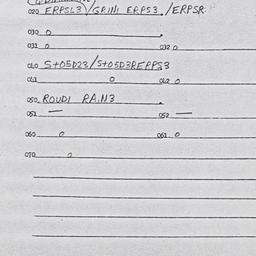 020 ERPSL3/GRINI ERPS3./ERPSR
030 0
031 0 032 0
040 S+05D23/S+05D3RERPS3
041 0 042 0
050 ROUDI RAIN3
051 — 052 —
060 0 061 0
070 0